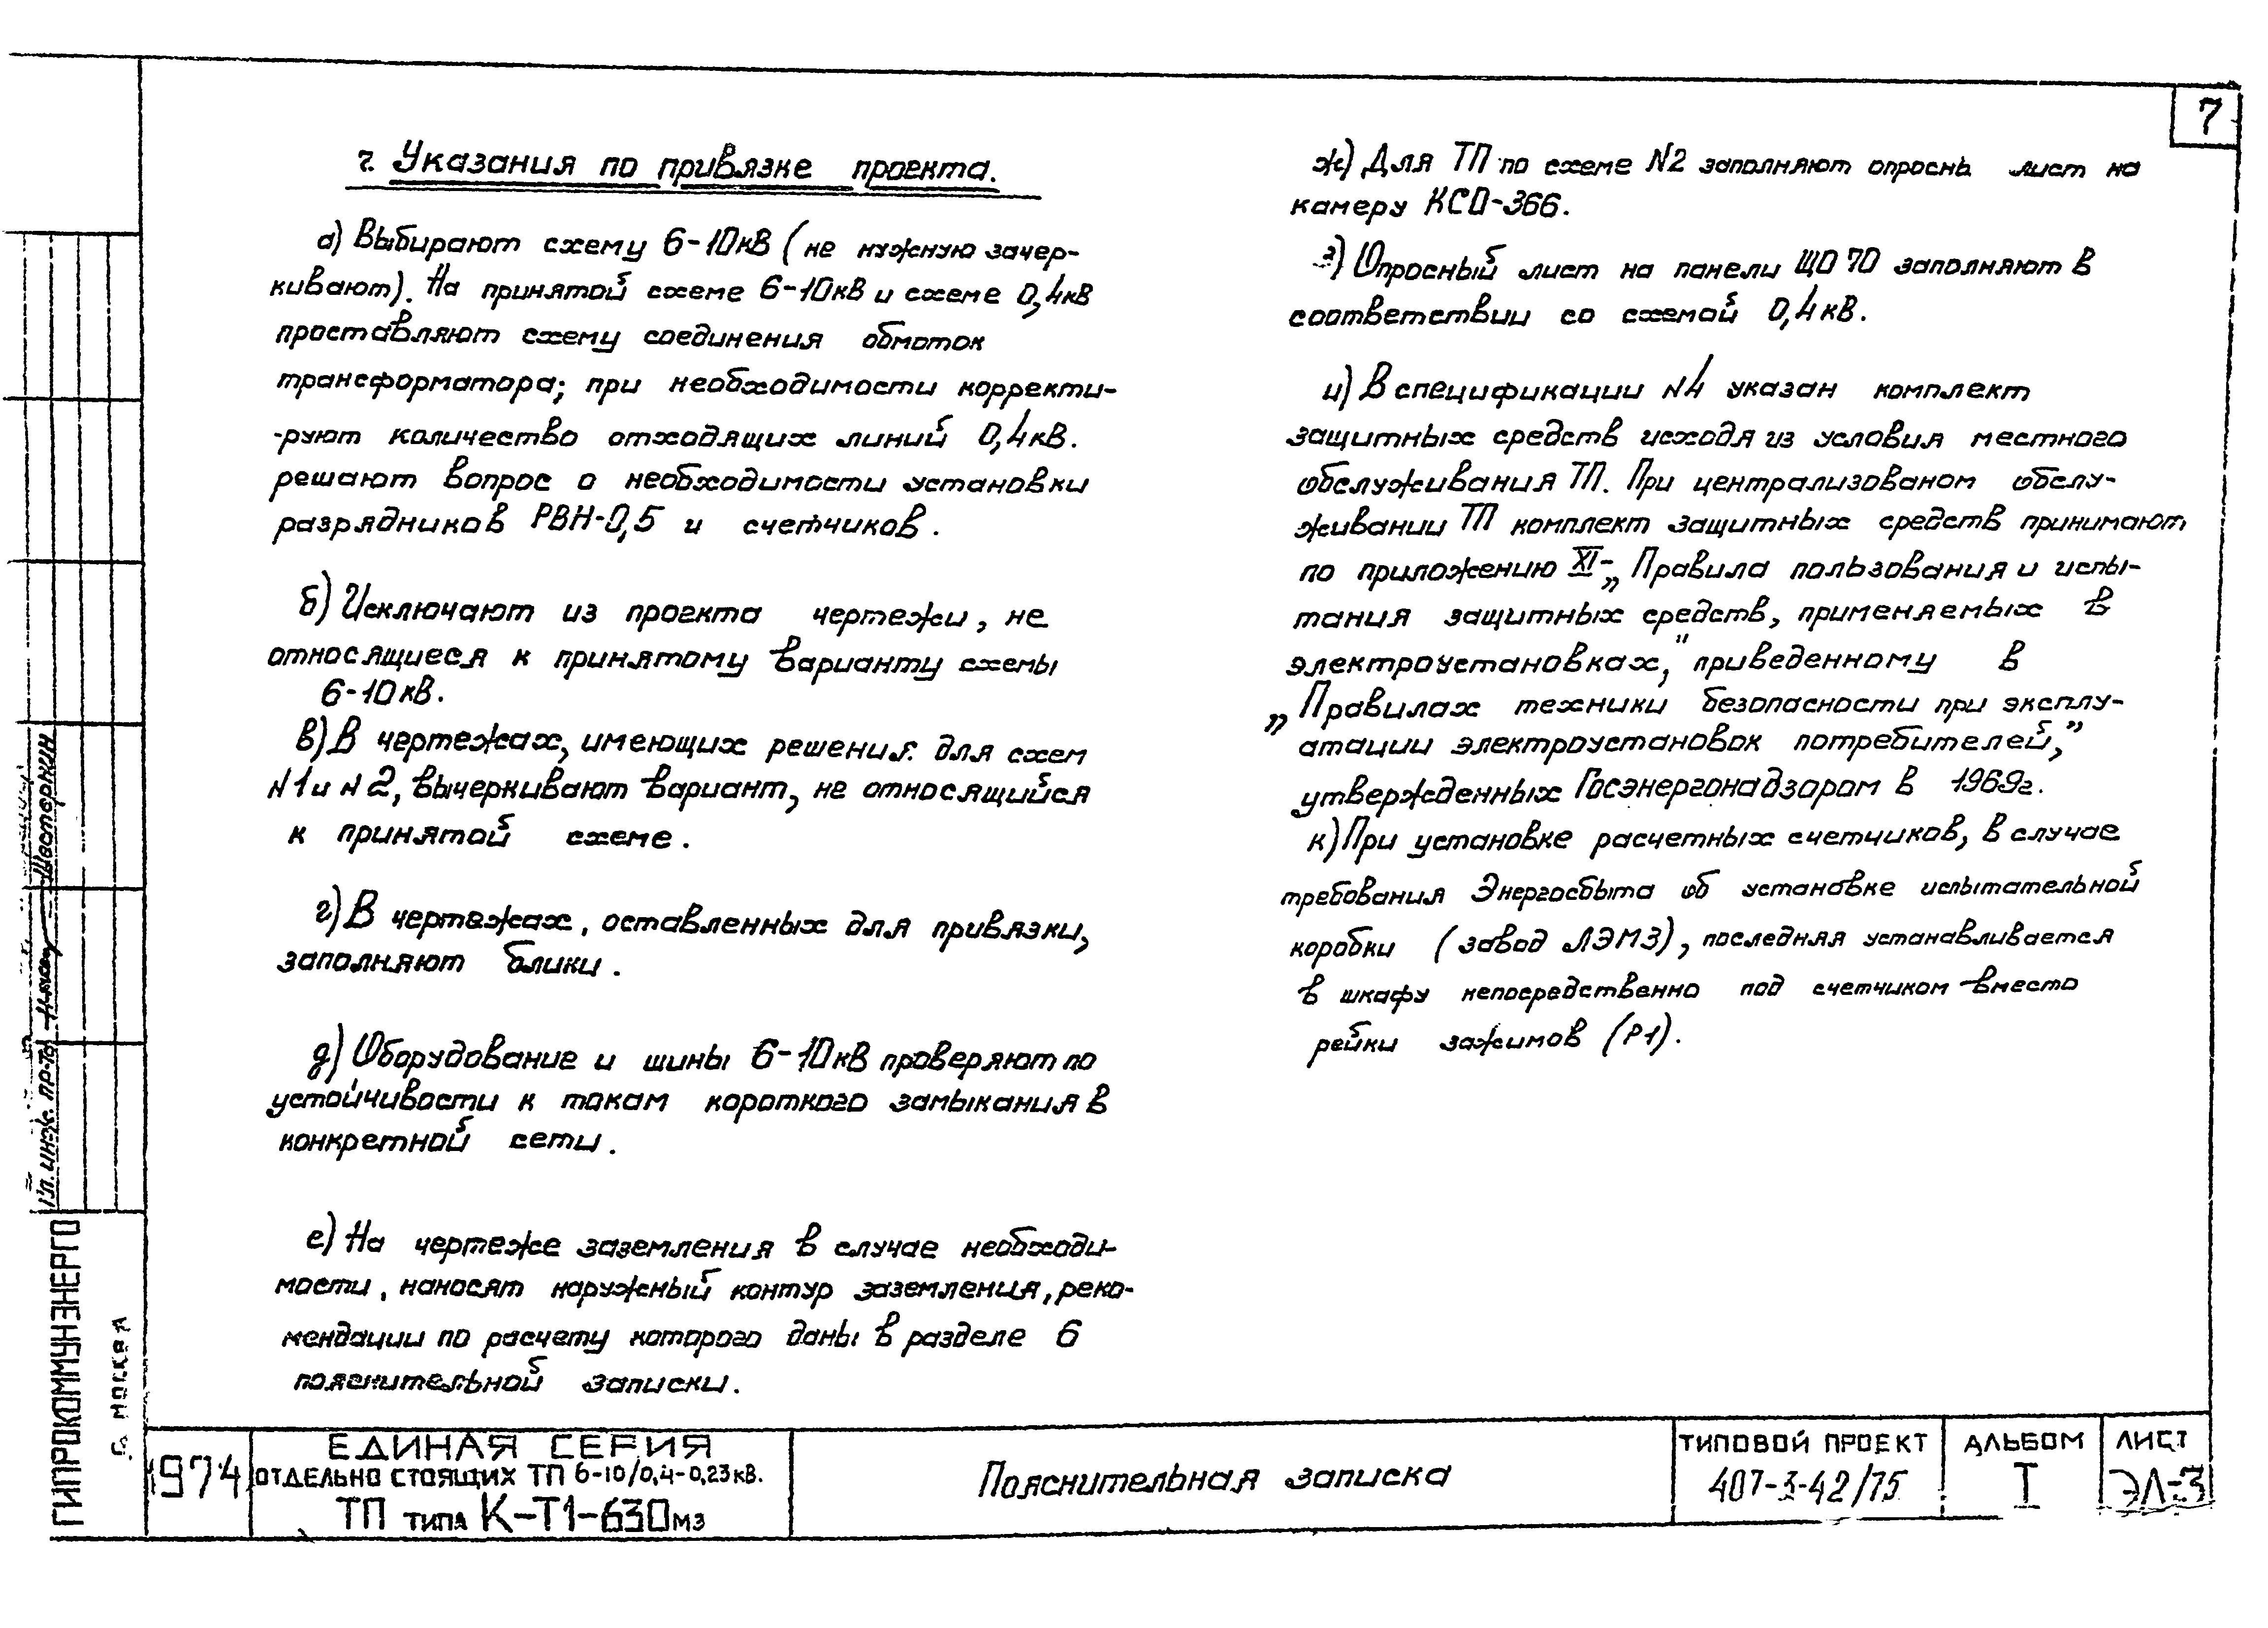 7
7. Указания по привязке проекта.
а) Выбирают схему 6-10кВ (не нужную зачер-
кивают). На принятой схеме 6-10кВ и схеме 0,4кВ
проставляют схему соединения обмоток
трансформатора; при необходимости корректи-
-руют количество отходящих линий 0,4кВ.
решают вопрос о необходимости установки
разрядников РВН-0,5 и счетчиков.
б) Исключают из проекта чертежи, не
относящиеся к принятому варианту схемы
6-10кВ.
в) В чертежах, имеющих решения для схем
N1 и N2, вычеркивают вариант, не относящийся
к принятой схеме.
г) В чертежах, оставленных для привязки,
заполняют блики.
д) Оборудование и шины 6-10кВ проверяют по
устойчивости к токам короткого замыкания в
конкретной сети.
е) На чертеже заземления в случае необходи-
мости, наносят наружный контур заземления, реко-
мендации по расчету которого даны в разделе 6
пояснительной записки.
ж) Для ТП по схеме N2 заполняют опросны лист на
камеру КСО-366.
з) Опросный лист на панели ЩО 70 заполняют в
соответствии со схемой 0,4кВ.
и) В спецификации N4 указан комплект
защитных средств исходя из условия местного
обслуживания ТП. При централизованом обслу-
живании ТП комплект защитных средств принимают
по приложению XI- „Правила пользования и испы-
тания защитных средств, применяемых в
электроустановках," приведенному в
„Правилах техники безопасности при эксплу-
атации электроустановок потребителей,"
утвержденных Госэнергонадзором в 1969г.
к) При установке расчетных счетчиков, в случае
требования Энергосбыта об установке испытательной
коробки (завод ЛЭМЗ), последняя устанавливается
в шкафу непосредственно под счетчиком вместо
рейки зажимов (Р1).
Гл. инж. пр-та Шестеркин
ГИПРОКОММУНЭНЕРГО
г. МОСКВА
1974
ЕДИНАЯ СЕРИЯ
ОТДЕЛЬНО СТОЯЩИХ ТП 6-10/0,4-0,23кВ.
ТП ТИПА К-Т1-630МЗ
Пояснительная записка
ТИПОВОЙ ПРОЕКТ
407-3-42/75
АЛЬБОМ
I
ЛИСТ
ЭЛ-3